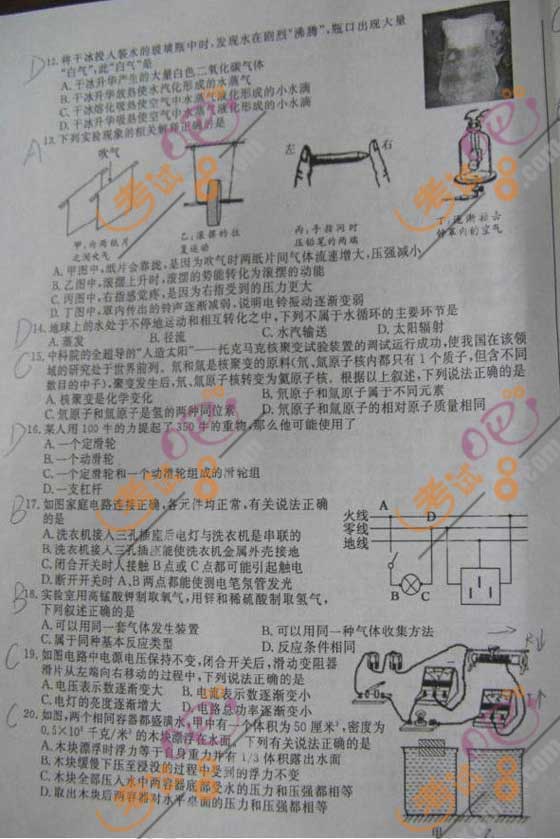 12.将干冰投入装水的玻璃瓶中时,发现水在剧烈“沸腾”,瓶口出现大量
“白气”,此“白气”是
A.干冰升华产生的大量白色二氧化碳气体
B.干冰升华放热使水汽化形成的水蒸气
C.干冰熔化吸热使空气中水蒸气液化形成的小水滴
D.干冰升华吸热使空气中水蒸气液化形成的小水滴
13.下列实验现象的相关解释正确的是
吹气
左
右
甲:向两纸片之间吹气
乙:滚摆的往复运动
丙:手指同时压铅笔的两端
丁:逐渐抽去钟罩内的空气
A.甲图中,纸片会靠拢,是因为吹气时两纸片间气体流速增大,压强减小
B.乙图中,滚摆上升时,滚摆的势能转化为滚摆的动能
C.丙图中,右指感觉疼,是因为右指受到的压力更大
D.丁图中,罩内传出的铃声逐渐减弱,说明电铃振动逐渐变弱
14.地球上的水处于不停地运动和相互转化之中,下列不属于水循环的主要环节是
A.蒸发 B.径流 C.水汽输送 D.太阳辐射
15.中科院的全超导的“人造太阳”——托克马克核聚变试验装置的调试运行成功,使我国在该领
域的研究处于世界前列。氘和氚是核聚变的原料(氘、氚原子核内都只有1个质子,但含不同
数目的中子),聚变发生后,氘、氚原子核转变为氦原子核。根据以上叙述,下列说法正确的是
A.核聚变是化学变化 B.氘原子和氚原子属于不同元素
C.氘原子和氚原子是氢的两种同位素 D.氘原子和氚原子的相对原子质量相同
16.某人用100牛的力提起了350牛的重物,那么他可能使用了
A.一个定滑轮
B.一个动滑轮
C.一个定滑轮和一个动滑轮组成的滑轮组
D.一支杠杆
17.如图家庭电路连接正确,各元件均正常,有关说法正确
的是
A.洗衣机接入三孔插座后电灯与洗衣机是串联的
B.洗衣机接入三孔插座能使洗衣机金属外壳接地
C.闭合开关时人接触B点或C点都可能引起触电
D.断开开关时A、B两点都能使测电笔氖管发光
火线
零线
地线
A
D
B
C
18.实验室用高锰酸钾制取氧气,用锌和稀硫酸制取氢气,
下列叙述正确的是
A.可以用同一套气体发生装置 B.可以用同一种气体收集方法
C.属于同种基本反应类型 D.反应条件相同
19.如图电路中电源电压保持不变,闭合开关后,滑动变阻器
滑片从左端向右移动的过程中,下列说法正确的是
A.电压表示数逐渐变大 B.电流表示数逐渐变小
C.电灯的亮度逐渐增大 D.电路总功率逐渐变小
20.如图,两个相同容器都盛满水,甲中有一个体积为50厘米³,密度为
0.5×10³千克/米³的木块漂浮在水面。下列有关说法正确的是
A.木块漂浮时浮力等于自身重力并有1/3体积露出水面
B.木块缓慢下压至浸没的过程中受到的浮力不变
C.木块全部压入水中两容器底部受水的压力和压强都相等
D.取出木块后两容器对水平桌面的压力和压强都相等
甲
考试吧